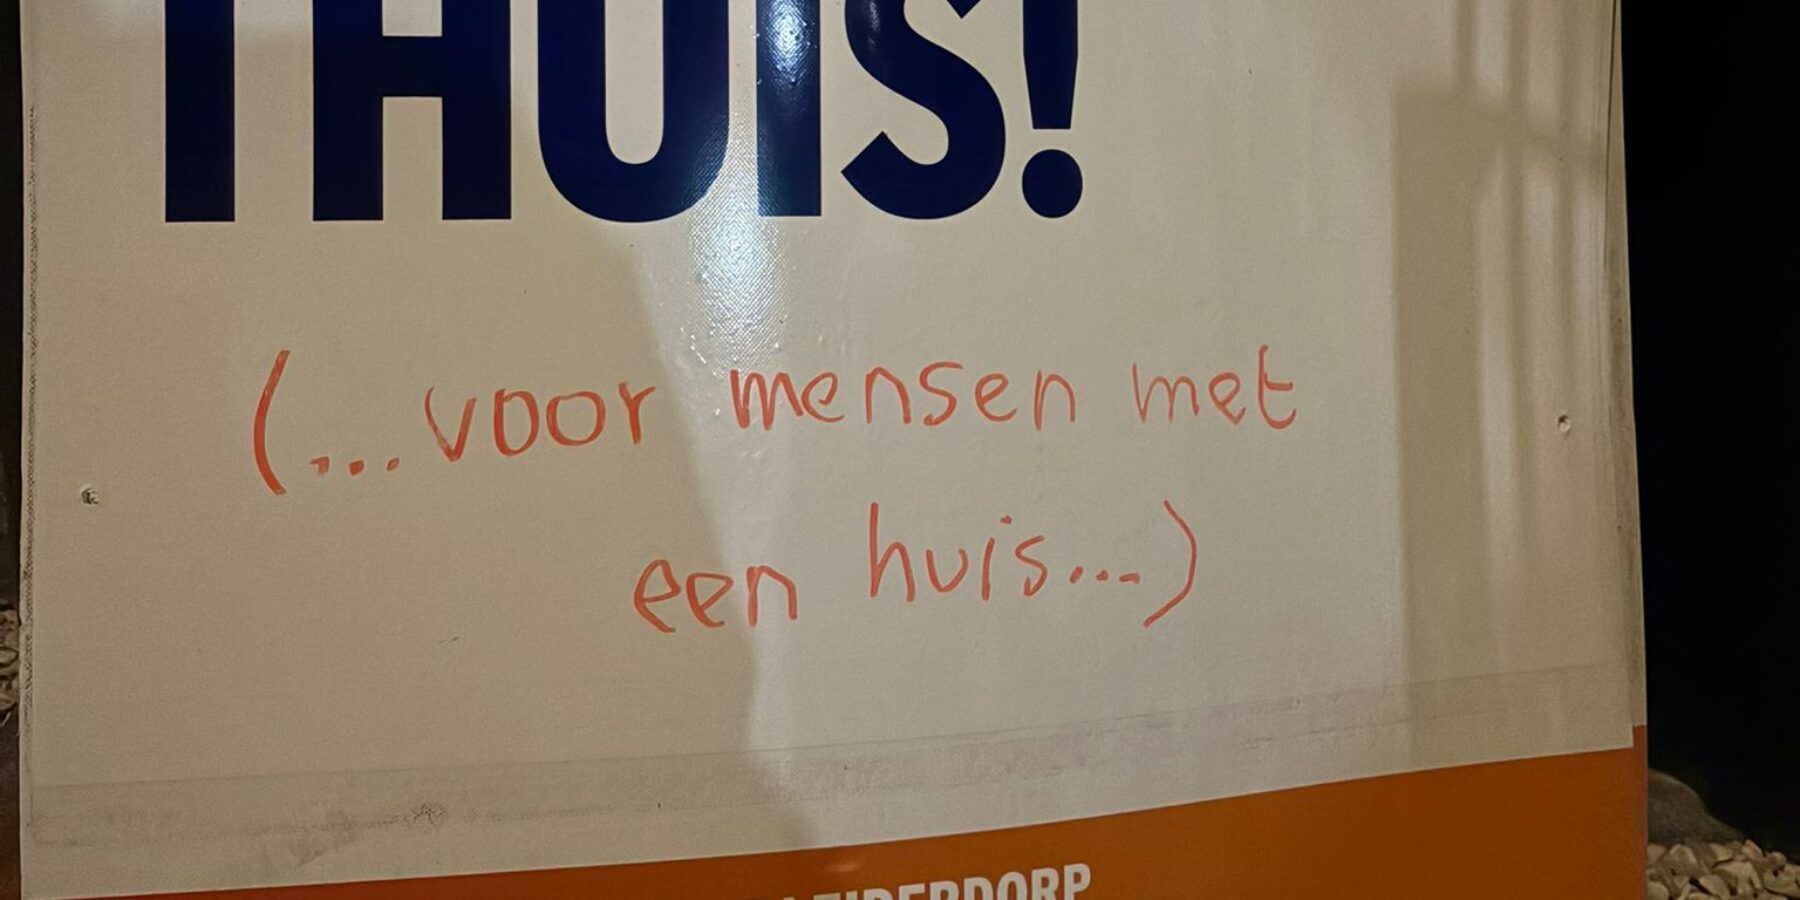 THUIS!
(...voor mensen met
een huis...)
LEIDERDORP